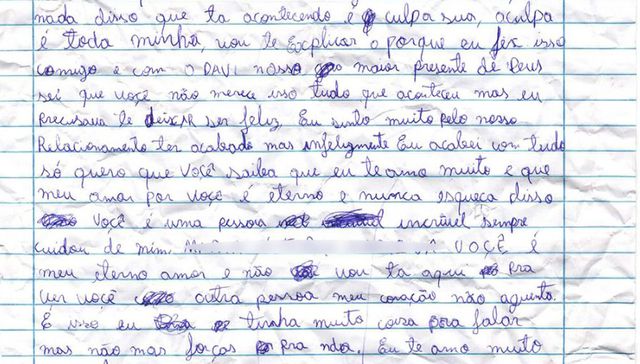 nada disso que ta acontecendo é culpa sua, a culpa
é toda minha, vou te Explicar o porque eu fix isso
comigo e com o DAVI nosso maior presente de Deus
sei que você não merece isso tudo que aconteceu mas eu
precisava te deixar ser feliz. Eu sinto muito pelo nosso
Relacionamento ter acabado mas infelizmente Eu acabei com tudo
só quero que você saiba que eu te amo muito e que
meu amor por você é eterno e nunca esqueça disso
você é uma pessoa incrivel sempre
cuidou de mim. VOÇÊ é
meu eterno amor e não vou ta aqui pra
ver você outra pessoa meu coração não aguenta.
E isso eu tinha muito coisa pra falar
mas não mas forças pra nda. Eu te amo muito